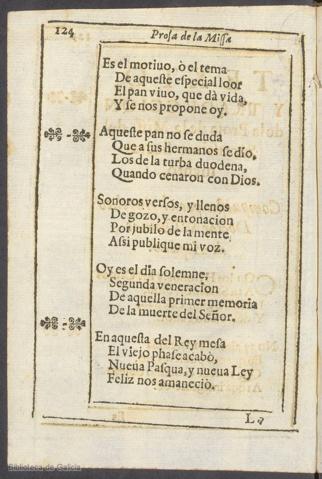 124
Prosa de la Missa
Es el motiuo, ò el tema
De aqueste especial loor
El pan viuo, que dà vida,
Y se nos propone oy.
Aqueste pan no se duda
Que a sus hermanos se dio,
Los de la turba duodena,
Quando cenaron con Dios.
Sonoros versos, y llenos
De gozo, y entonacion
Por jubilo de la mente
Assi publique mi voz.
Oy es el dia solemne,
Segunda veneracion
De aquella primer memoria
De la muerte del Señor.
En aquesta del Rey mesa
El viejo phase acabò,
Nueua Pasqua, y nueua Ley
Feliz nos amaneciò.
Biblioteca de Galicia